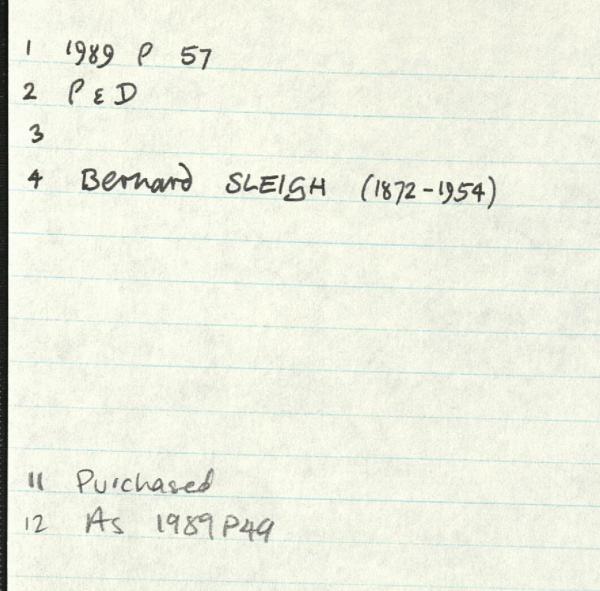 1 1989 P 57
2 P & D
3
4 Bernard SLEIGH (1872-1954)
11 Purchased
12 As 1989 P49